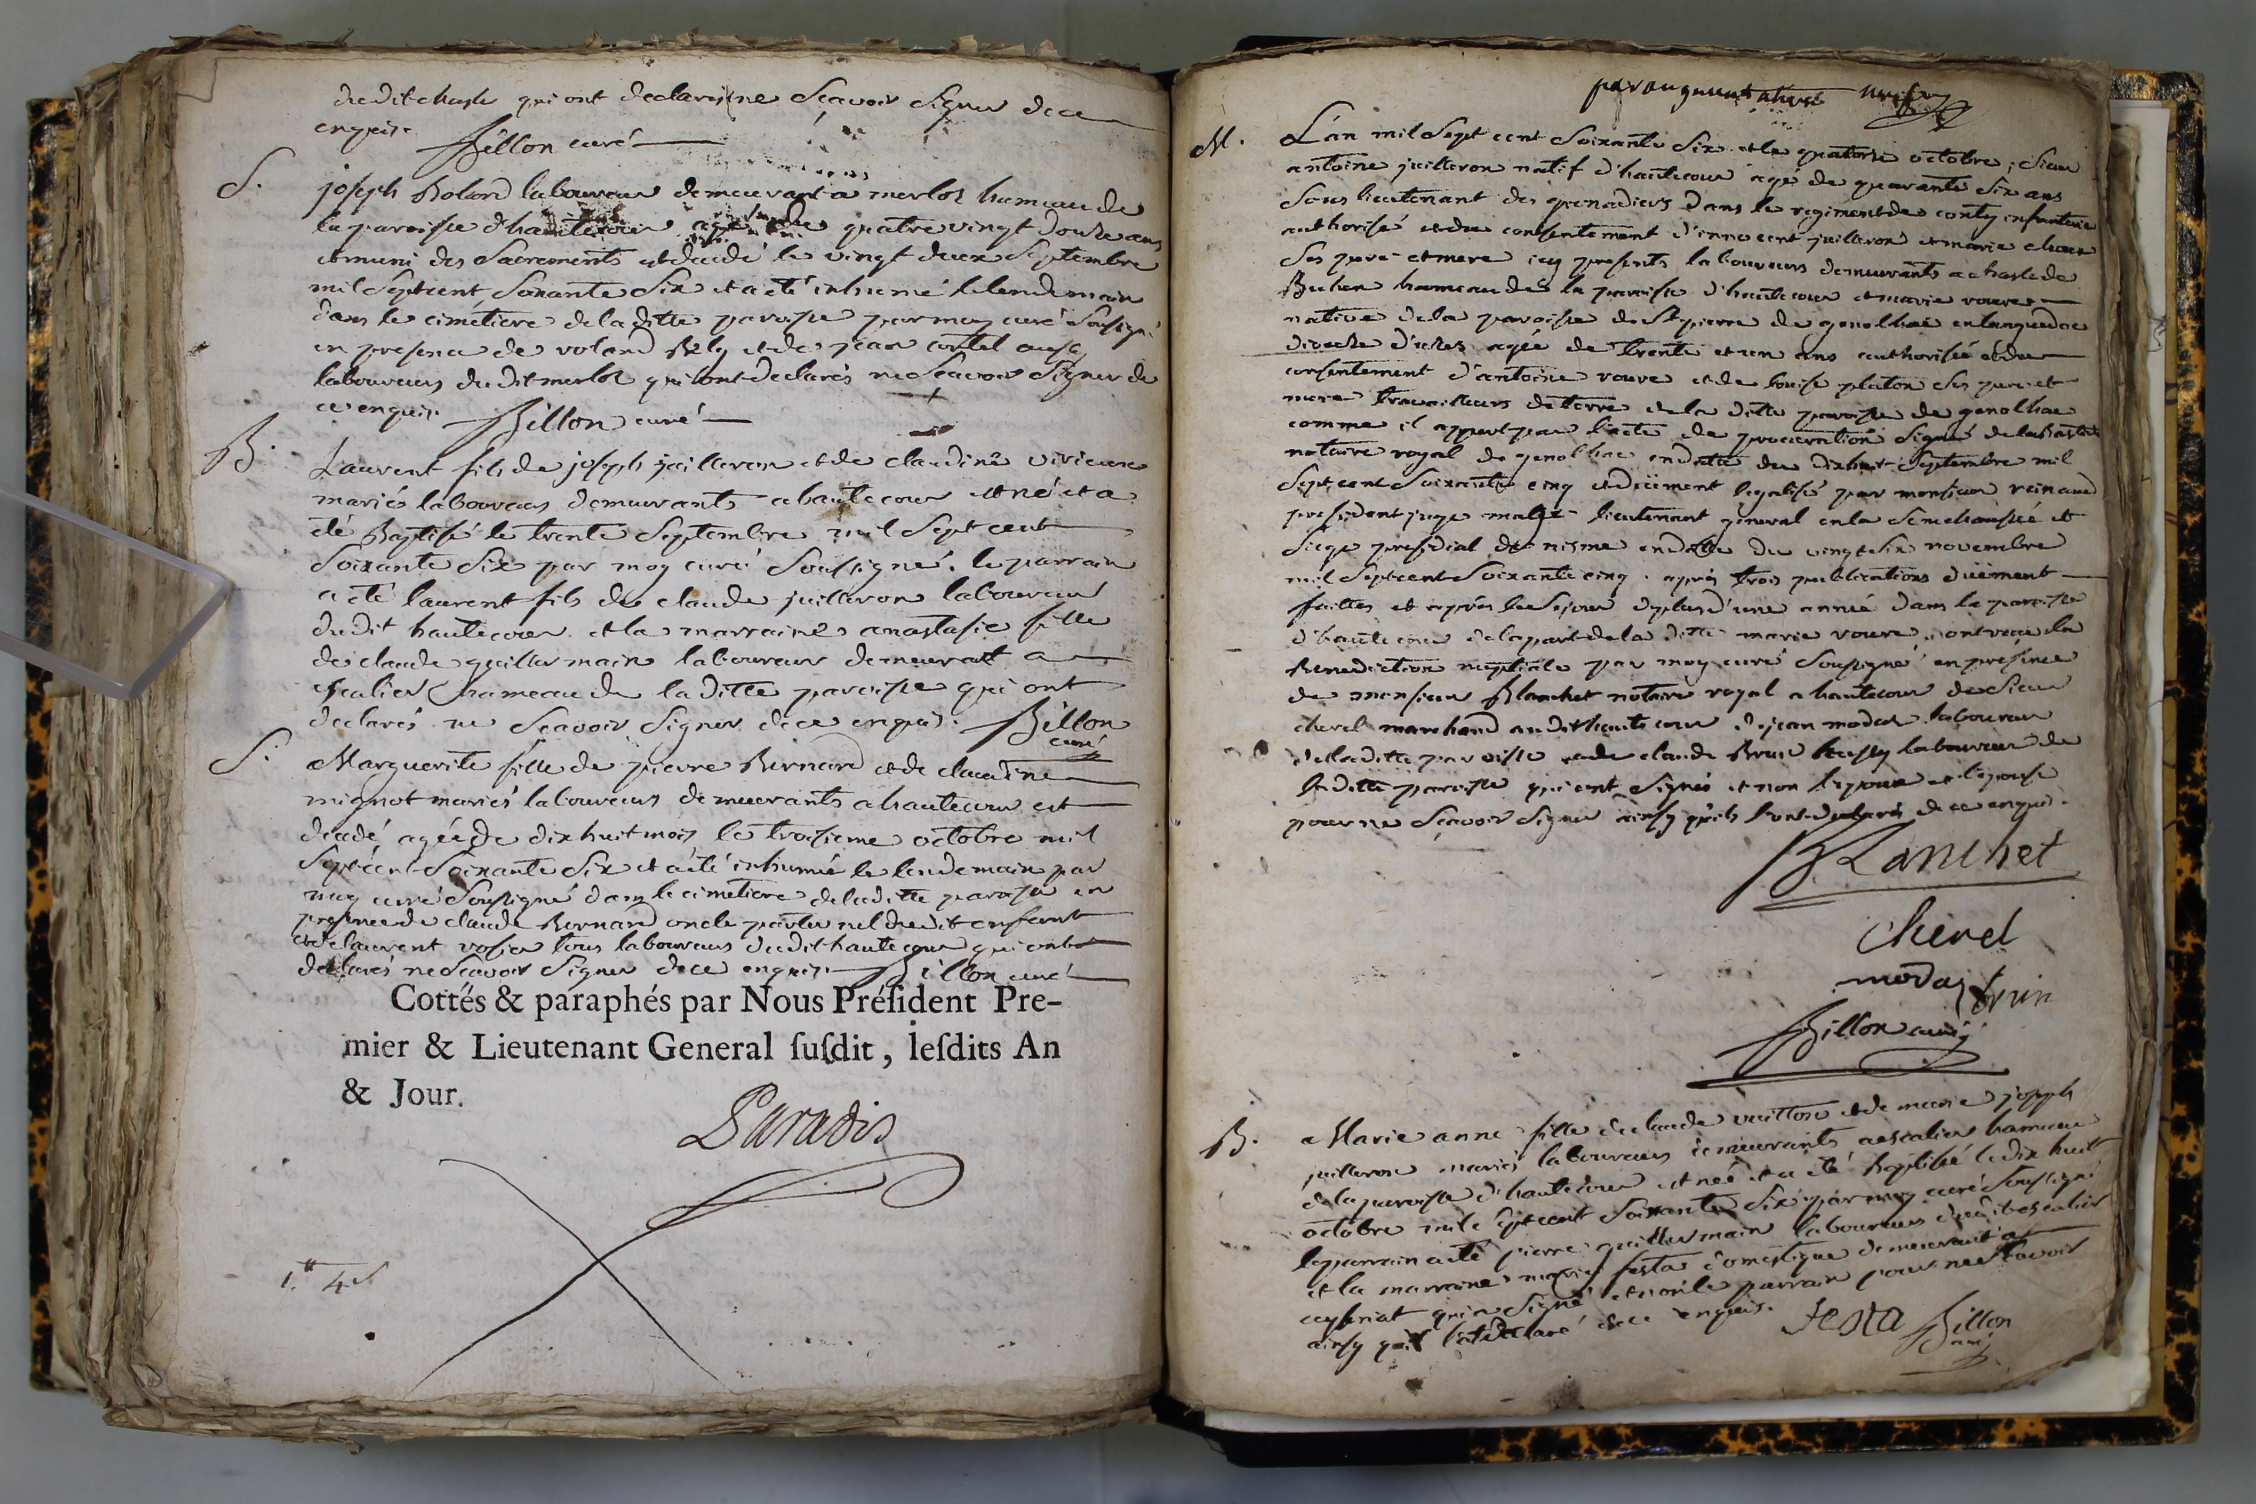 dudit chasle qui ont declarés ne Scavoir Signer de ce
enquis. Billon curé
S. joseph Boland laboureur demeurant a merloz hameau de
la paroisse d'hautecour agé de quatre vingt douze ans
et muni des Sacrements est decedé le vingt deux Septembre
mil Sept cent Soixante Six et a eté inhumé le lendemain
dans le cimetiere de la ditte paroisse par moy curé Soussigné
en presence de roland Bely et de jean
laboureurs dudit merloz qui ont declarés ne Scavoir Signer de
ce enquis. Billon curé
B. Laurent fils de joseph juilleron et de claudine
mariés laboureurs demeurants a hautecour est né et a
été Baptisé le trente Septembre mil Sept cent
Soixante Six par moy curé Soussigné. le parrain
a eté laurent fils de claude juilleron laboureur
dudit hautecour et la marraine anastasie fille
de claude guillermain laboureur demeurant a
escalier hameau de la ditte paroisse qui ont
declarés ne Scavoir Signer de ce enquis. Billon
curé
S. Marguerite fille de pierre Bernard et de claudine
mignot mariés laboureurs demeurants a hautecour est
decedé agée de dix huit mois le troisieme octobre mil
Sept cent Soixante Six et a eté inhumée le lendemain par
moy curé Soussigné dans le cimetiere de la ditte paroisse en
presence de claude Bernard oncle paternel dudit enfant
et de laurent tous laboureurs dudit hautecour qui ont
declarés ne Scavoir Signer de ce enquis. Billon curé
Cottés & paraphés par Nous Préſident Pre-
mier & Lieutenant General ſuſdit, leſdits An
& Jour.
Paradis
par augmentation
M. L'an mil Sept cent Soixante Six et le quatorze octobre, Sieur
antoine juilleron natif d'hautecour agé de quarante Six ans
Sous lieutenant des grenadiers dans le regiment de conty infanterie
authorisé et du consentement d'innocent juilleron et marie
Ses pere et mere icy presents laboureurs demeurants a chasle de
Bohan hameau de la paroisse d'hautecour et marie rouvre
native de la paroisse de St pierre de genolhac en languedoc
diocèse d'uzez agée de trente et un ans authorisée et du
consentement d'antoine rouvre et de louise platon Ses pere et
mere travailleurs de terre de la ditte paroisse de genolhac
comme il appert par l'acte de procuration Signé
notaire royal de genolhac en datte du dixhuit Septembre mil
Sept cent Soixante cinq et düement legalisé par monsieur reinaud
president juge mage lieutenant general en la Senechaussée et
Siege presidial de nisme en datte du vingt Six novembre
mil Sept cent Soixante cinq. après trois publications düement
faittes et après le Sejour de plus d'une année dans la paroisse
d'hautecour de la part de la ditte marie rouvre, ont recu la
Benediction nuptiale par moy curé Soussigné en presence
de monsieur Blanchet notaire royal a hautecour de Sieur
cherel marchand audit hautecour de jean modas laboureur
de la ditte paroisse et de claude Brun laboureur de
la ditte paroisse qui ont Signés et non l'epoux et l'epouse
pour ne Sçavoir Signer ainsy qu'ils l'ont declarés de ce enquis.
Blanchet
cherel
modas brun
Billon curé
B. Marie anne fille de claude vuitton et de marie joseph
juilleron mariés laboureurs demeurants a escalier hameau
de la paroisse d'hautecour est née et a été baptisé le dix huit
octobre mil Sept cent Soixante Six par moy curé Soussigné
le parrain a eté pierre guillermain laboureur dudit escalier
et la marraine marie festa domestique demeurant a
ceyseriat qui a Signé et non le parrain pour ne Scavoir
ainsy qu'il l'at declaré de ce enquis. festa Billon
curé